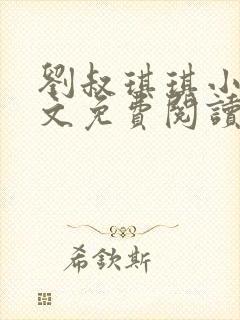 劉叔琪琪小
文免費閱讀
希欽斯